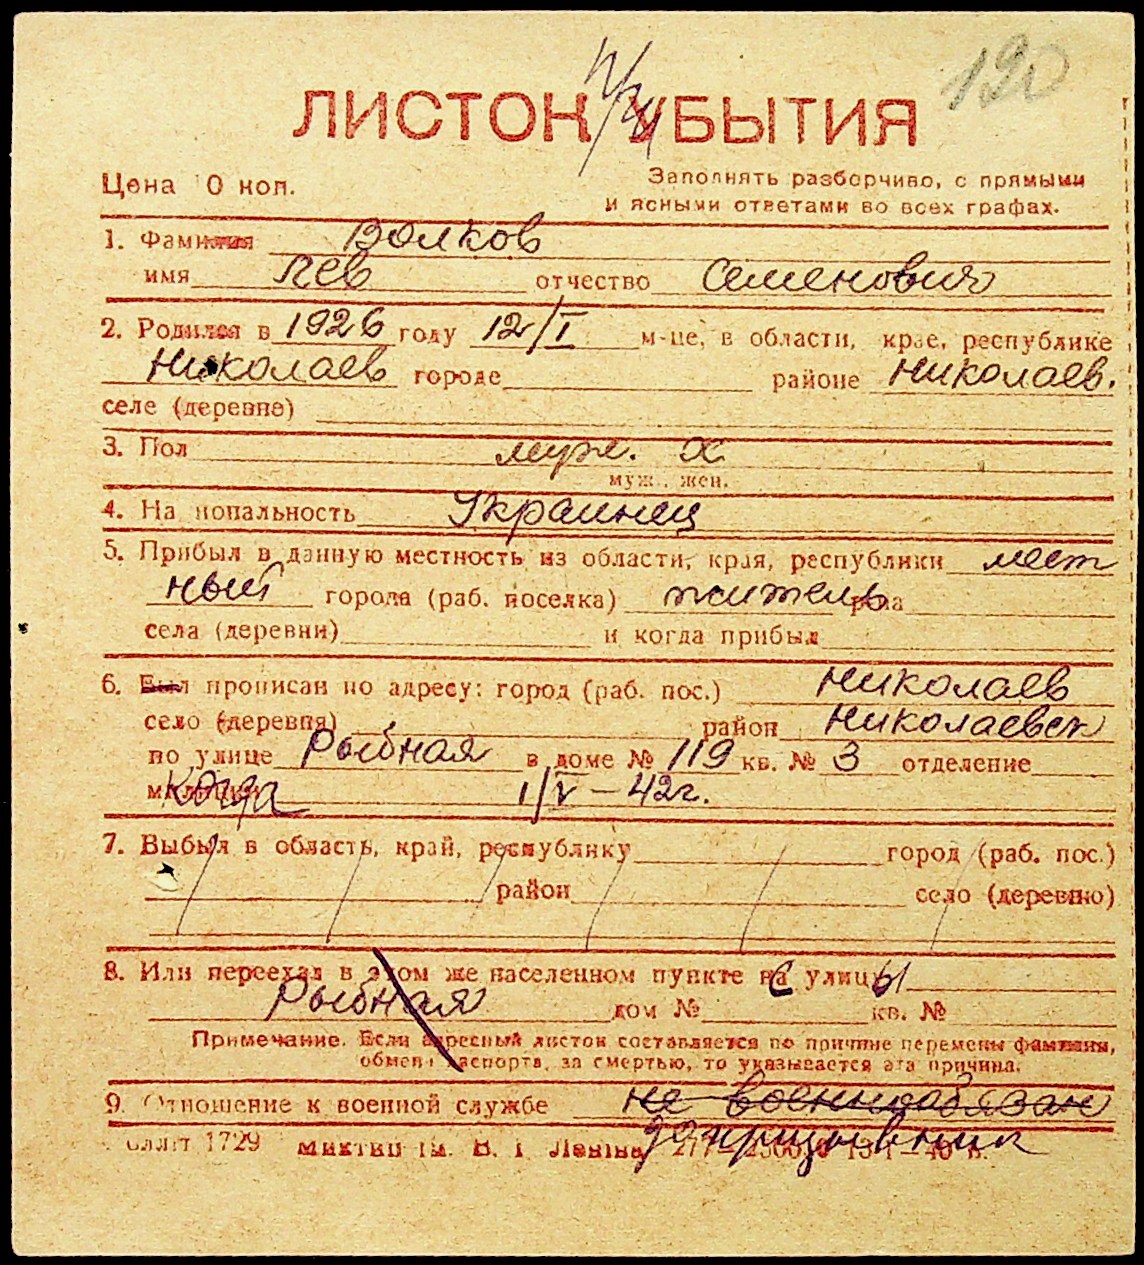 190
ЛИСТОК УБЫТИЯ
Цена 10 коп.
Заполнять разборчиво, с прямыми
и ясными ответами во всех графах.
1. Фамилия Волков
имя Лев отчество Семенович
2. Родился в 1926 году 12/I м-це, в области, крае, республике
Николаев городе районе Николаев.
селе (деревне)
3. Пол муж. х
муж., жен.
4. Национальность Украинец
5. Прибыл в данную местность из области, края, республики мест
ный города (раб. поселка) житель
села (деревни) и когда прибыл
6. Был прописан по адресу: город (раб. пос.) Николаев
село (деревня) район Николаевск
по улице Рыбная в доме № 119 кв. № 3 отделение
милиции когда 1/V – 42г.
7. Выбыл в область, край, республику город (раб. пос.)
район село (деревню)
8. Или переехал в этом же населенном пункте с улицы
Рыбная дом № кв. №
Примечание. Если адресный листок составляется по причине перемены фамилии,
обмена паспорта, за смертью, то указывается эта причина.
9. Отношение к военной службе не военнообязан
допризывник
1729 В. І. Леніна